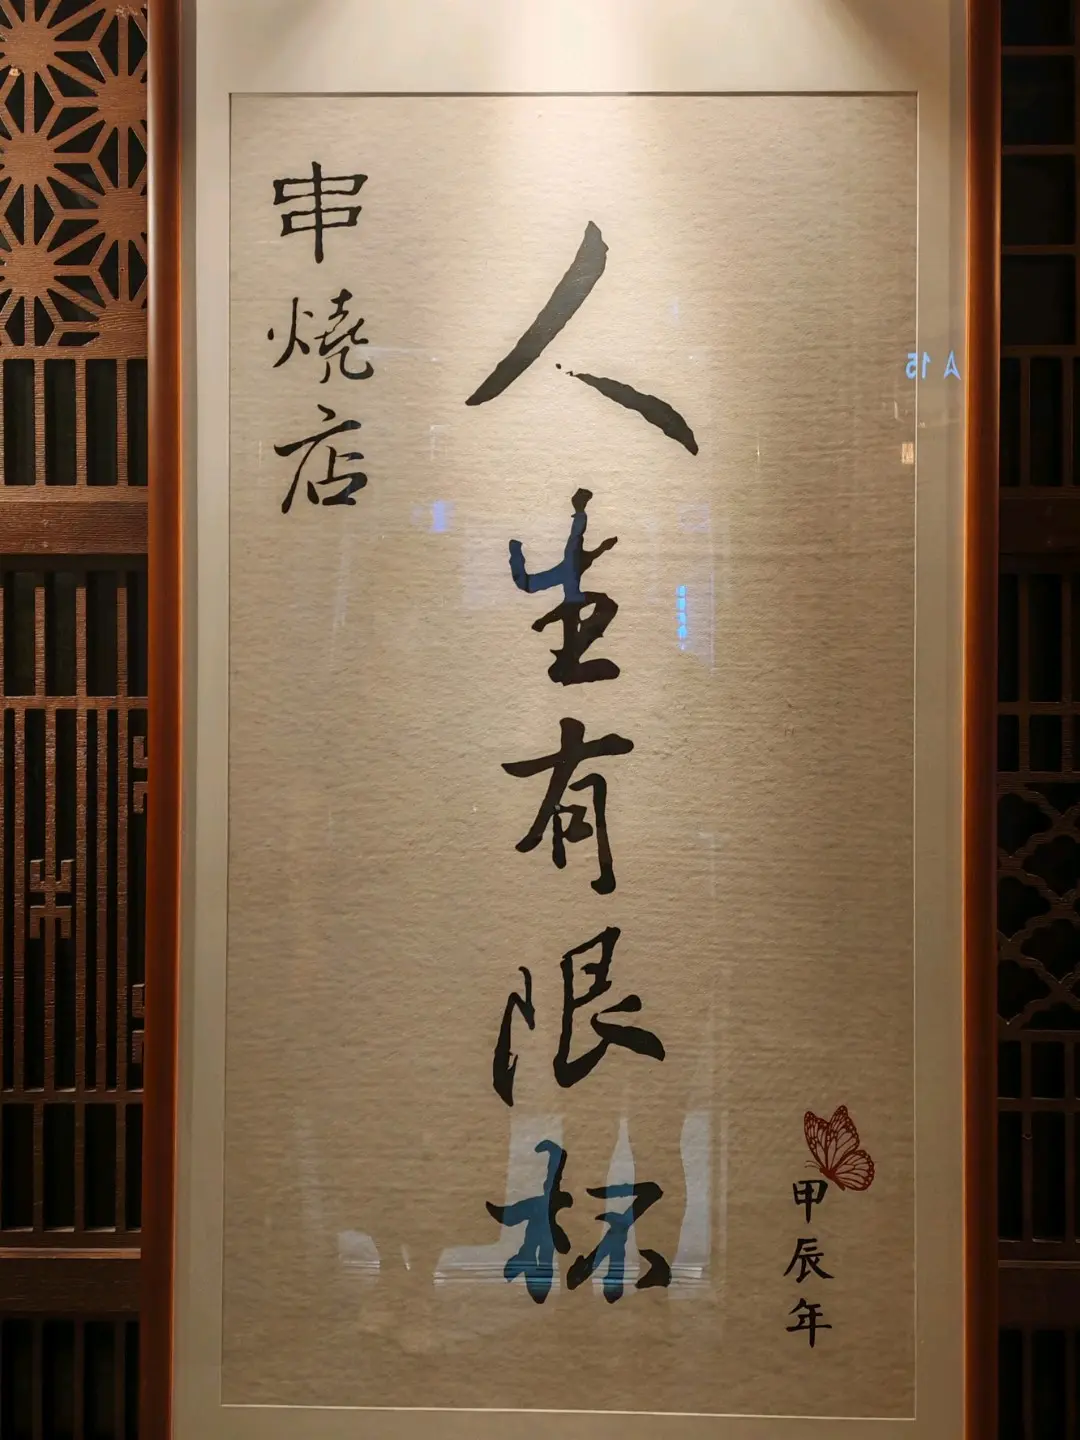 人生有限杯
串燒店
甲辰年
A 15